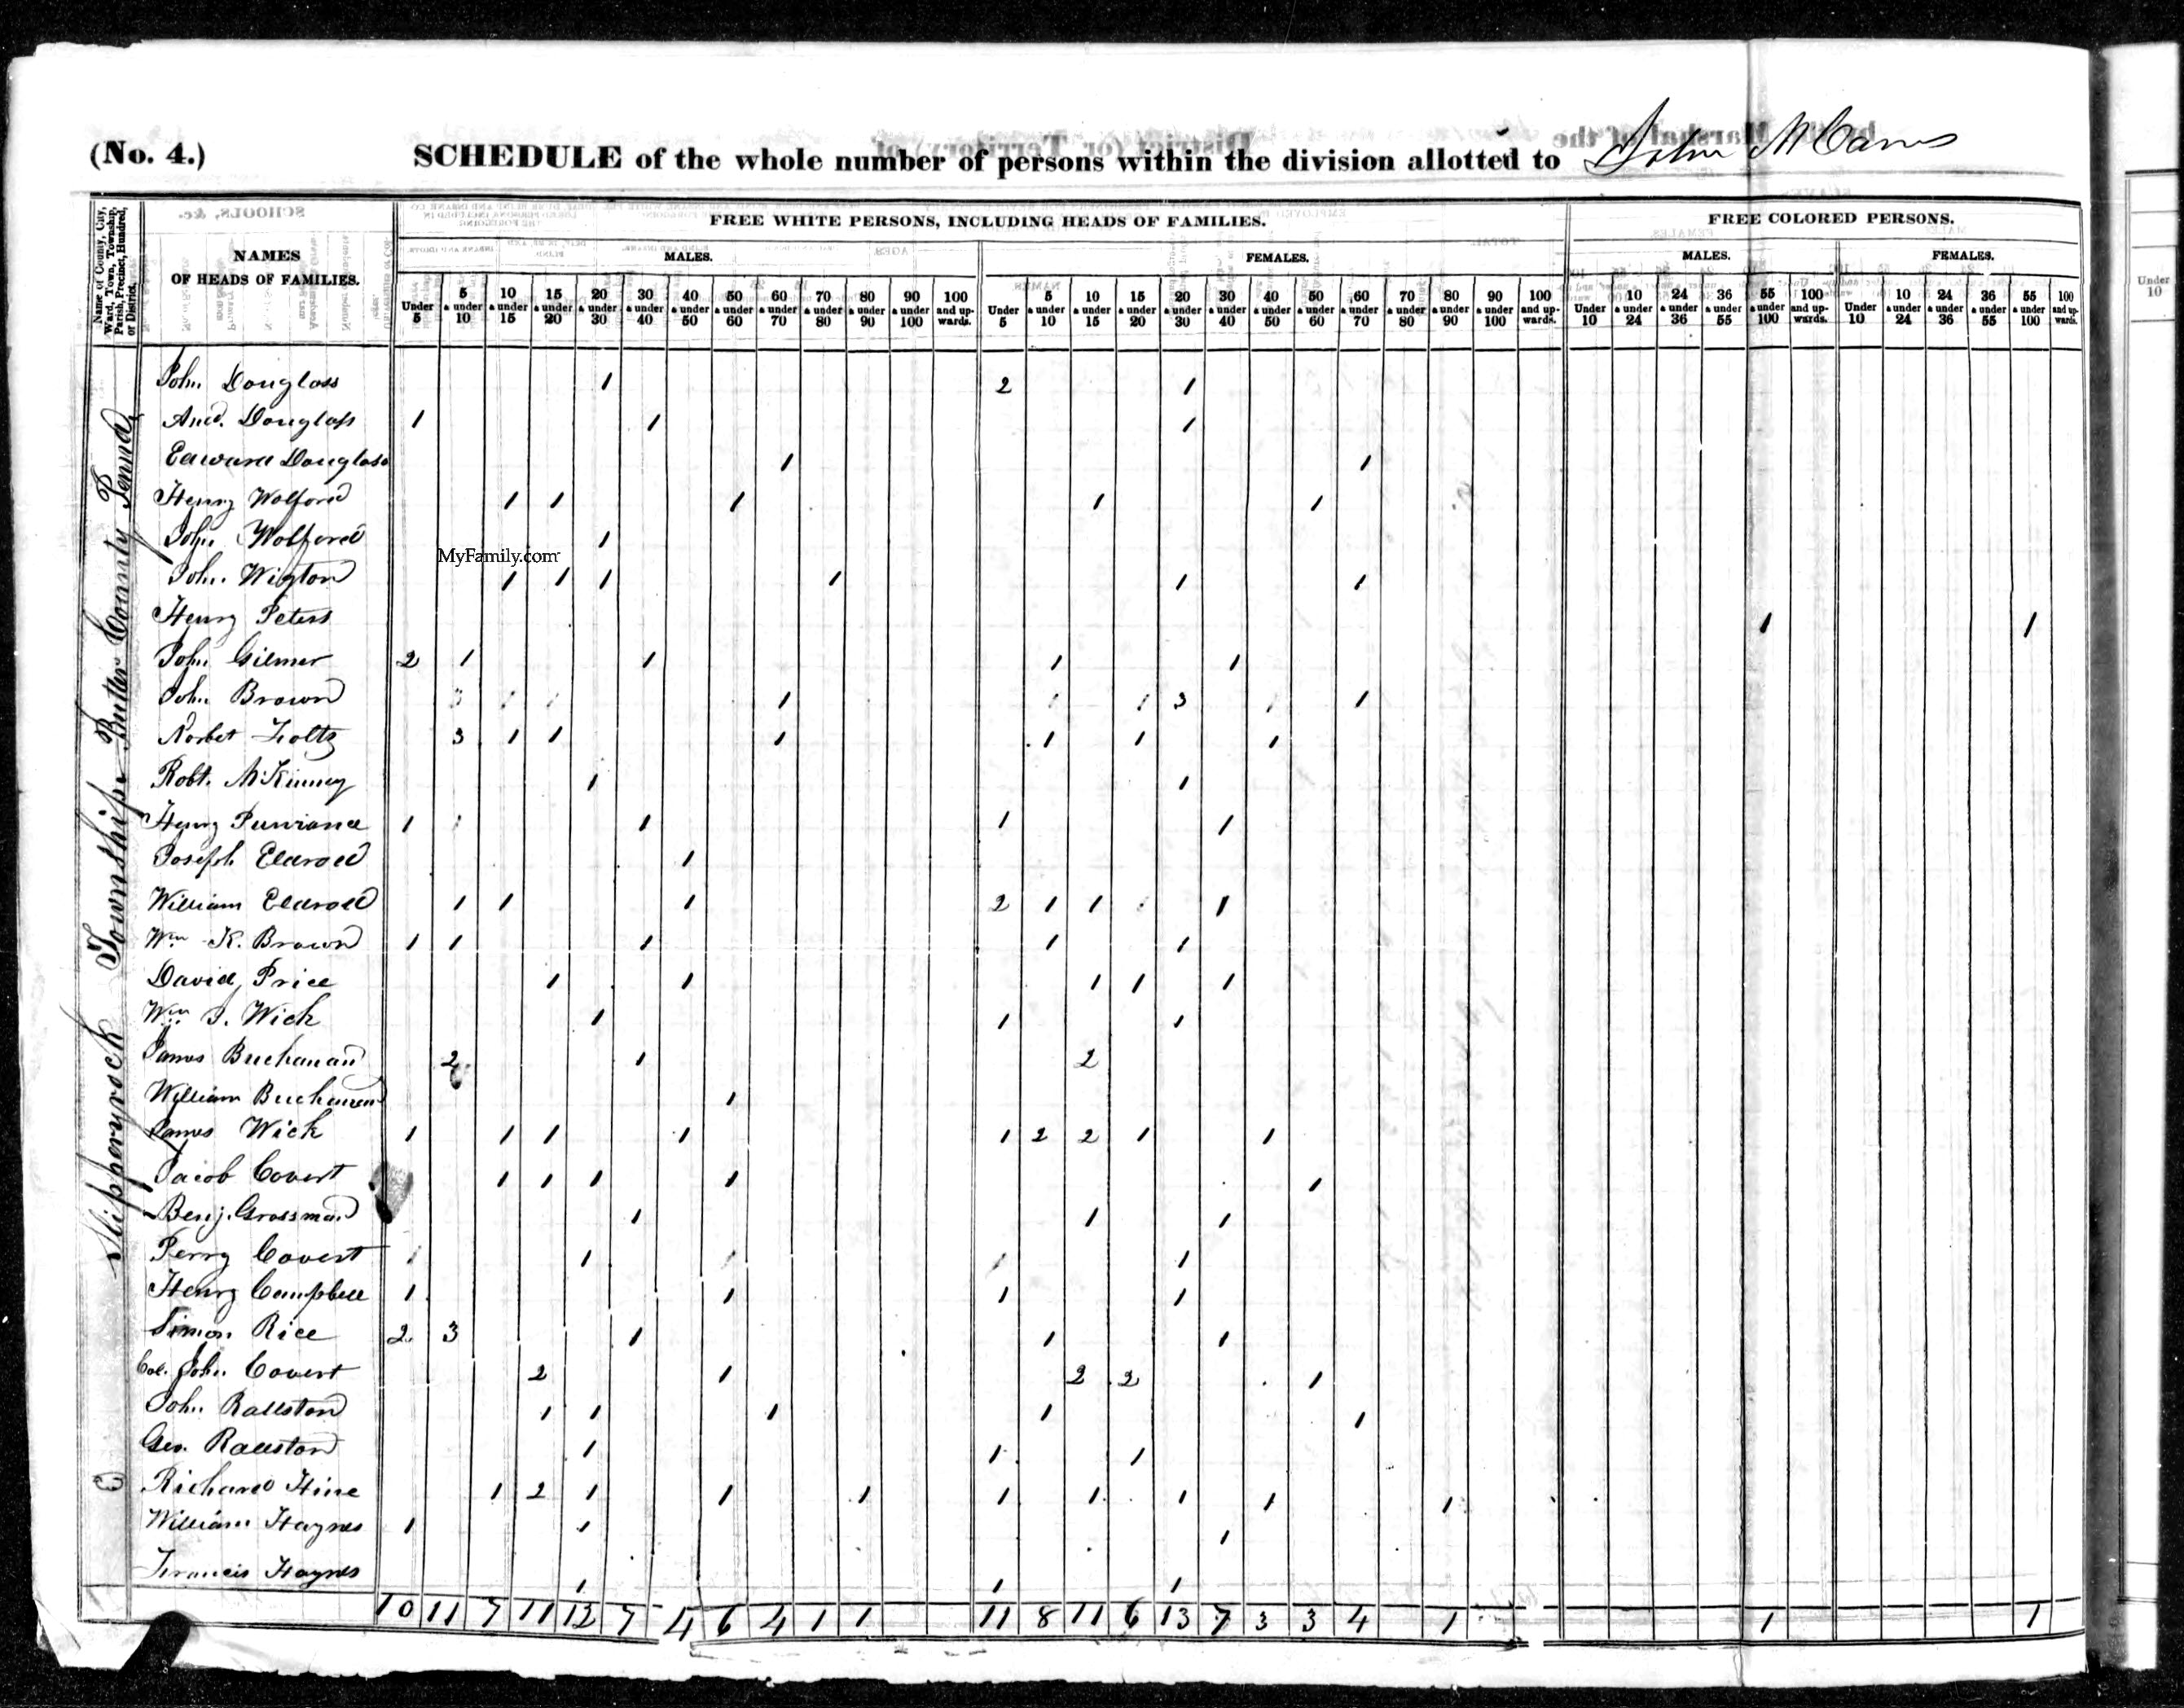 (No. 4.) SCHEDULE of the whole number of persons within the division allotted to John
Name of County, City, Ward, Town, Township, Parish, Precinct, Hundred, or District.
NAMES
OF HEADS OF FAMILIES.
FREE WHITE PERSONS, INCLUDING HEADS OF FAMILIES.
FREE COLORED PERSONS.
MALES. FEMALES. MALES. FEMALES.
Under 5 | 5 & under 10 | 10 & under 15 | 15 & under 20 | 20 & under 30 | 30 & under 40 | 40 & under 50 | 50 & under 60 | 60 & under 70 | 70 & under 80 | 80 & under 90 | 90 & under 100 | 100 and upwards. | Under 5 | 5 & under 10 | 10 & under 15 | 15 & under 20 | 20 & under 30 | 30 & under 40 | 40 & under 50 | 50 & under 60 | 60 & under 70 | 70 & under 80 | 80 & under 90 | 90 & under 100 | 100 and upwards. | Under 10 | 10 & under 24 | 24 & under 36 | 36 & under 55 | 55 & under 100 | 100 and upwards. | Under 10 | 10 & under 24 | 24 & under 36 | 36 & under 55 | 55 & under 100 | 100 and upwards.
Slipperyrock Township Butler County Penna
John Douglass 1 2 1
And. Douglass 1 1 1
Edward Douglass 1 1
Henry Wolford 1 1 1 1 1
John Wolford 1
MyFamily.com
John Wigton 1 1 1 1 1 1
Henry Peters 1 1
John Gilmer 2 1 1 1 1
John Brown 3 1 1 1 1 1 3 1 1
Norbet Foltz 3 1 1 1 1 1 1
Robt. McKinney 1 1
Henry Purviance 1 1 1 1 1
Joseph Eldroed 1
William Eldroed 1 1 1 2 1 1 1 1
Wm K. Brown 1 1 1 1 1
David Price 1 1 1 1 1
Wm S. Wick 1 1 1
James Buchanan 2 1 2
William Buchanan 1
James Wick 1 1 1 1 1 2 2 1 1
Jacob Covert 1 1 1 1 1
Benj. Grossman 1 1 1
Perry Covert 1 1 1 1 1
Henry Campbell 1 1 1 1
Simon Rice 2 3 1 1 1
Col. John Covert 2 1 2 2 1
John Rallston 1 1 1 1 1
Geo. Rallston 1 1 1
Richard Hine 1 2 1 1 1 1 1 1 1 1
William Haynes 1 1 1
Francis Haynes 1 1 1
10 11 7 11 12 7 4 6 4 1 1 11 8 11 6 13 7 3 3 4 1 1 1
Under 10